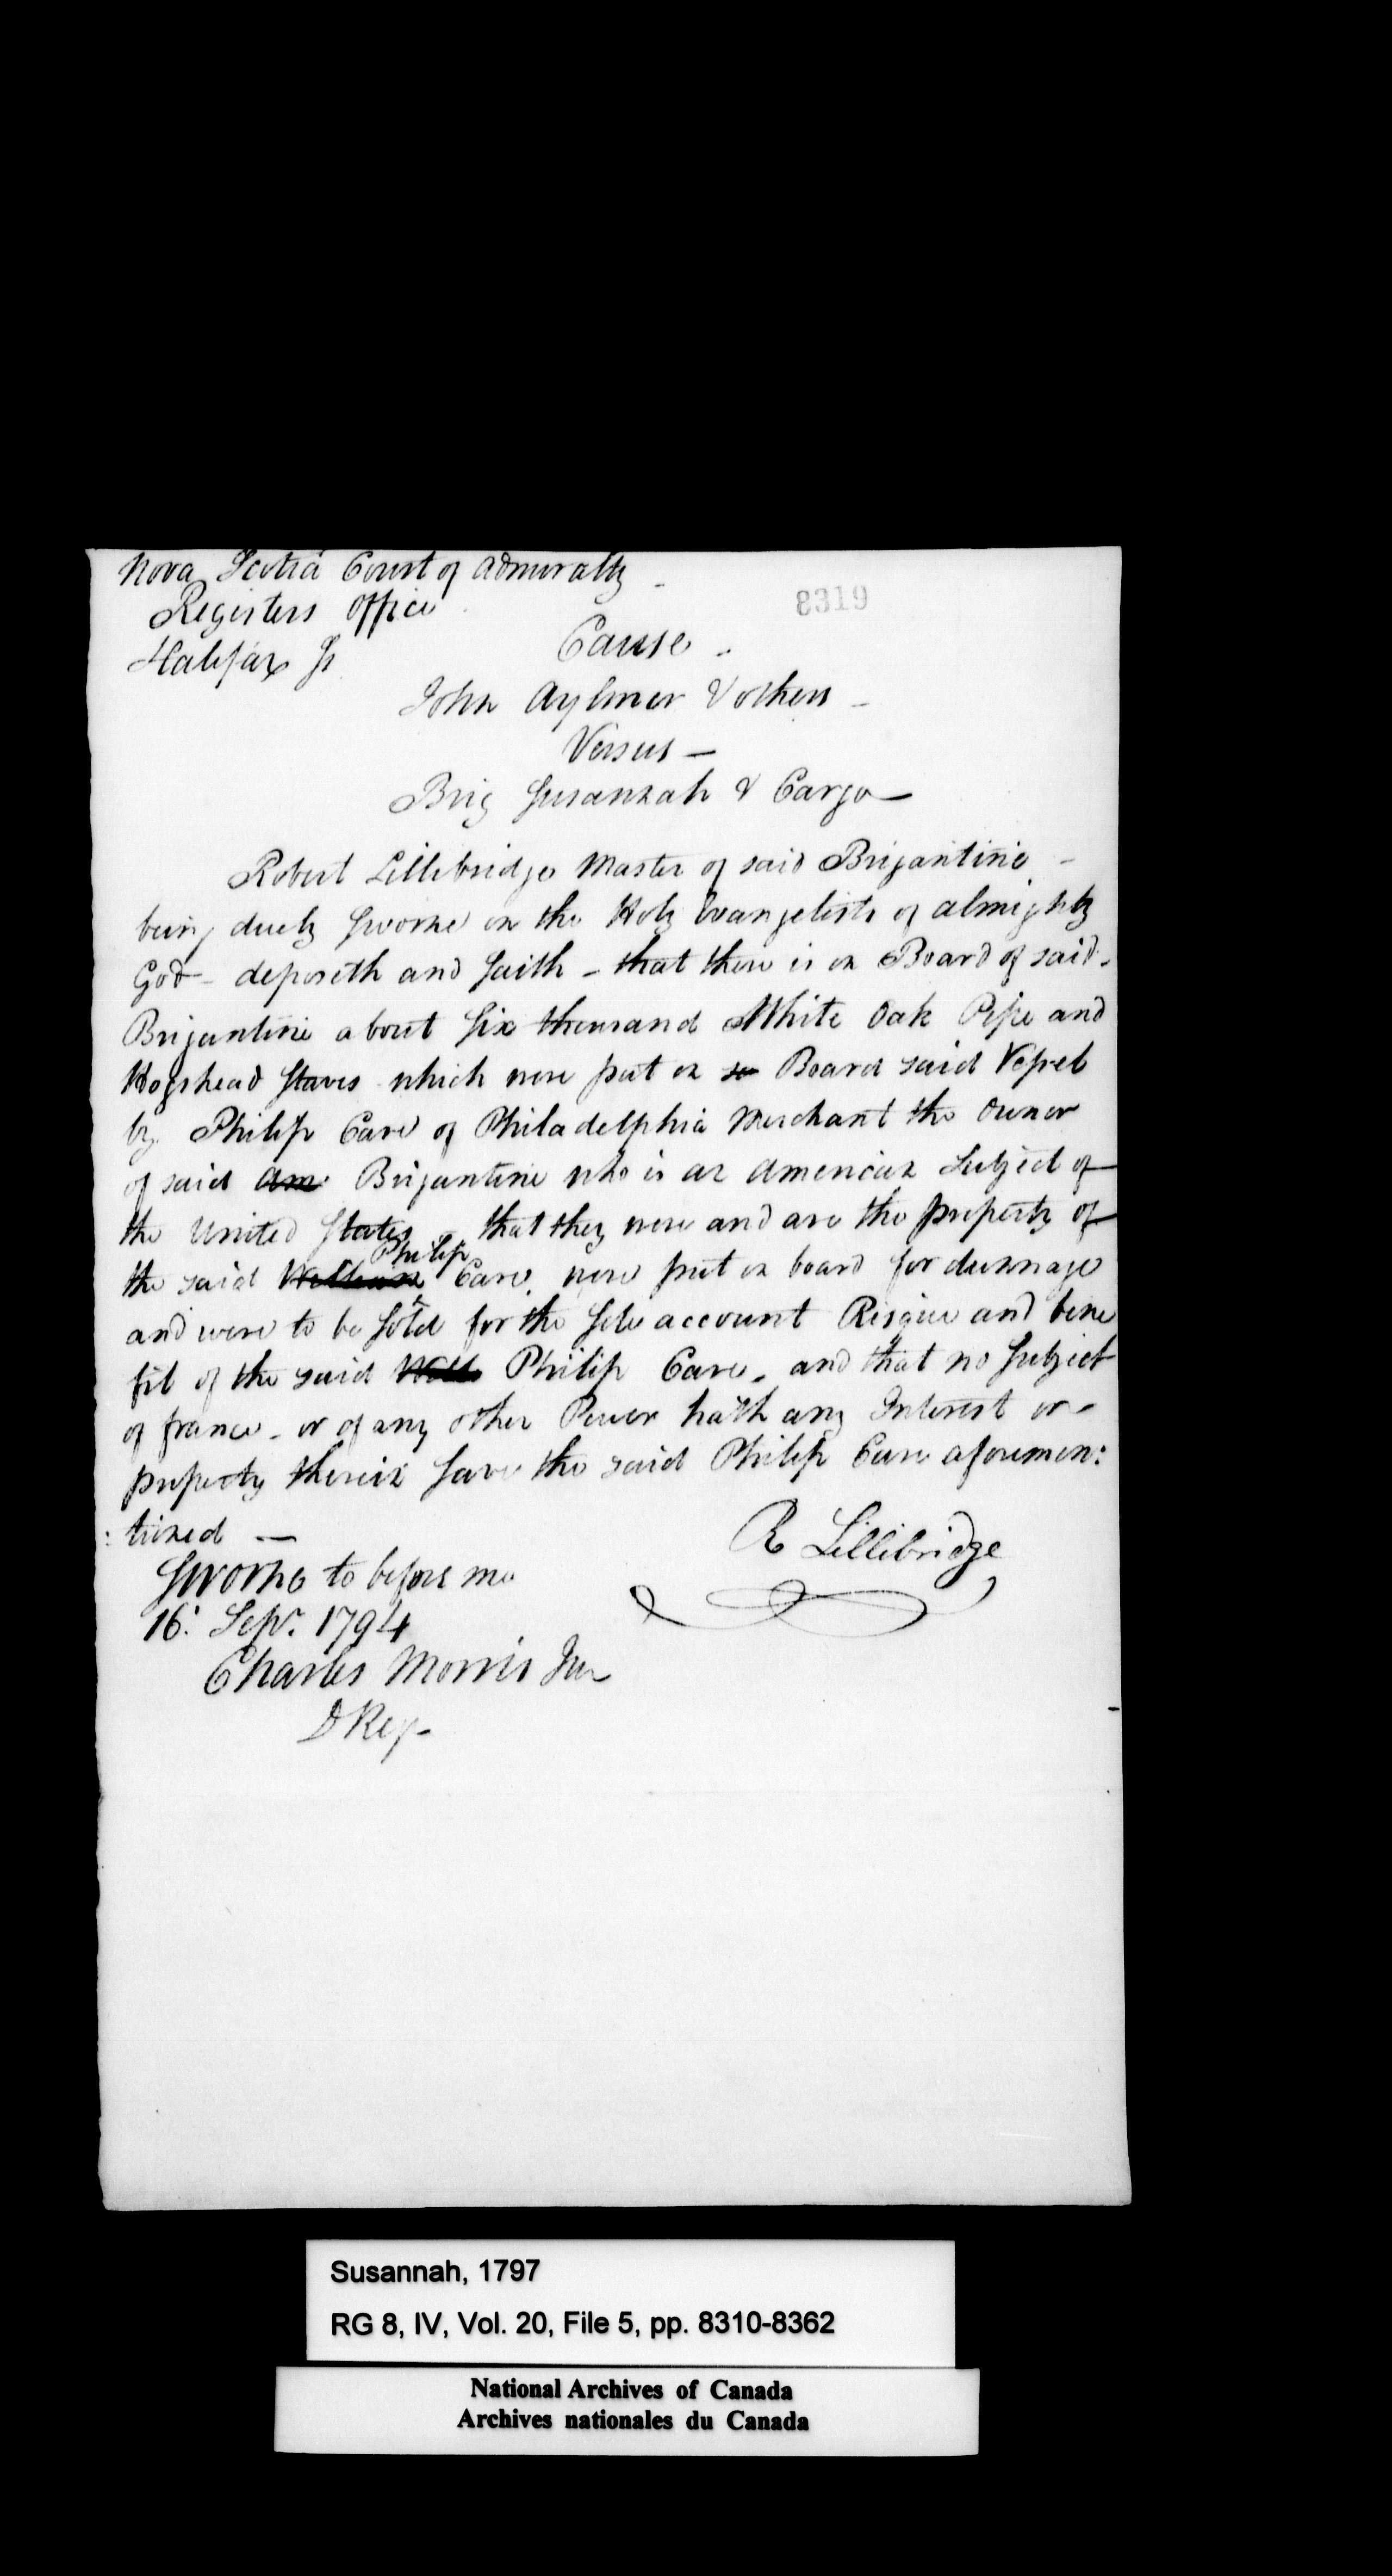 Nova Scotia Court of Admiralty -
Registers office
8319
Halifax Ss
Cause -
John Aylmer & others -
Versus -
Brig Susannah & Cargo
Robert Lillebridge Master of said Brigantine -
being duely Sworne on the Holy Evangelists of almighty
God - deposeth and Saith - that there is on Board of said -
Brigantine about Six thousand White Oak Pipe and
Hogshead Staves which were put on so Board said Vessel
by Philip Care of Philadelphia Merchant the Owner
of said Am Brigantine who is an American Subject of
the United States - that they were and are the property of
Philip
the said William Care, were put on board for dunnage
and were to be Sold for the Sole account Risque and bene
fit of the said Will Philip Care, and that no Subject
of france - or of any other Power hath any Interest or -
property therein Save the said Philip Care aforemen:
: tioned -
R Lillibridge
Sworne to before me
16: Sepr. 1794
Charles Morris Jur
D Reg -
Susannah, 1797
RG 8, IV, Vol. 20, File 5, pp. 8310-8362
National Archives of Canada
Archives nationales du Canada